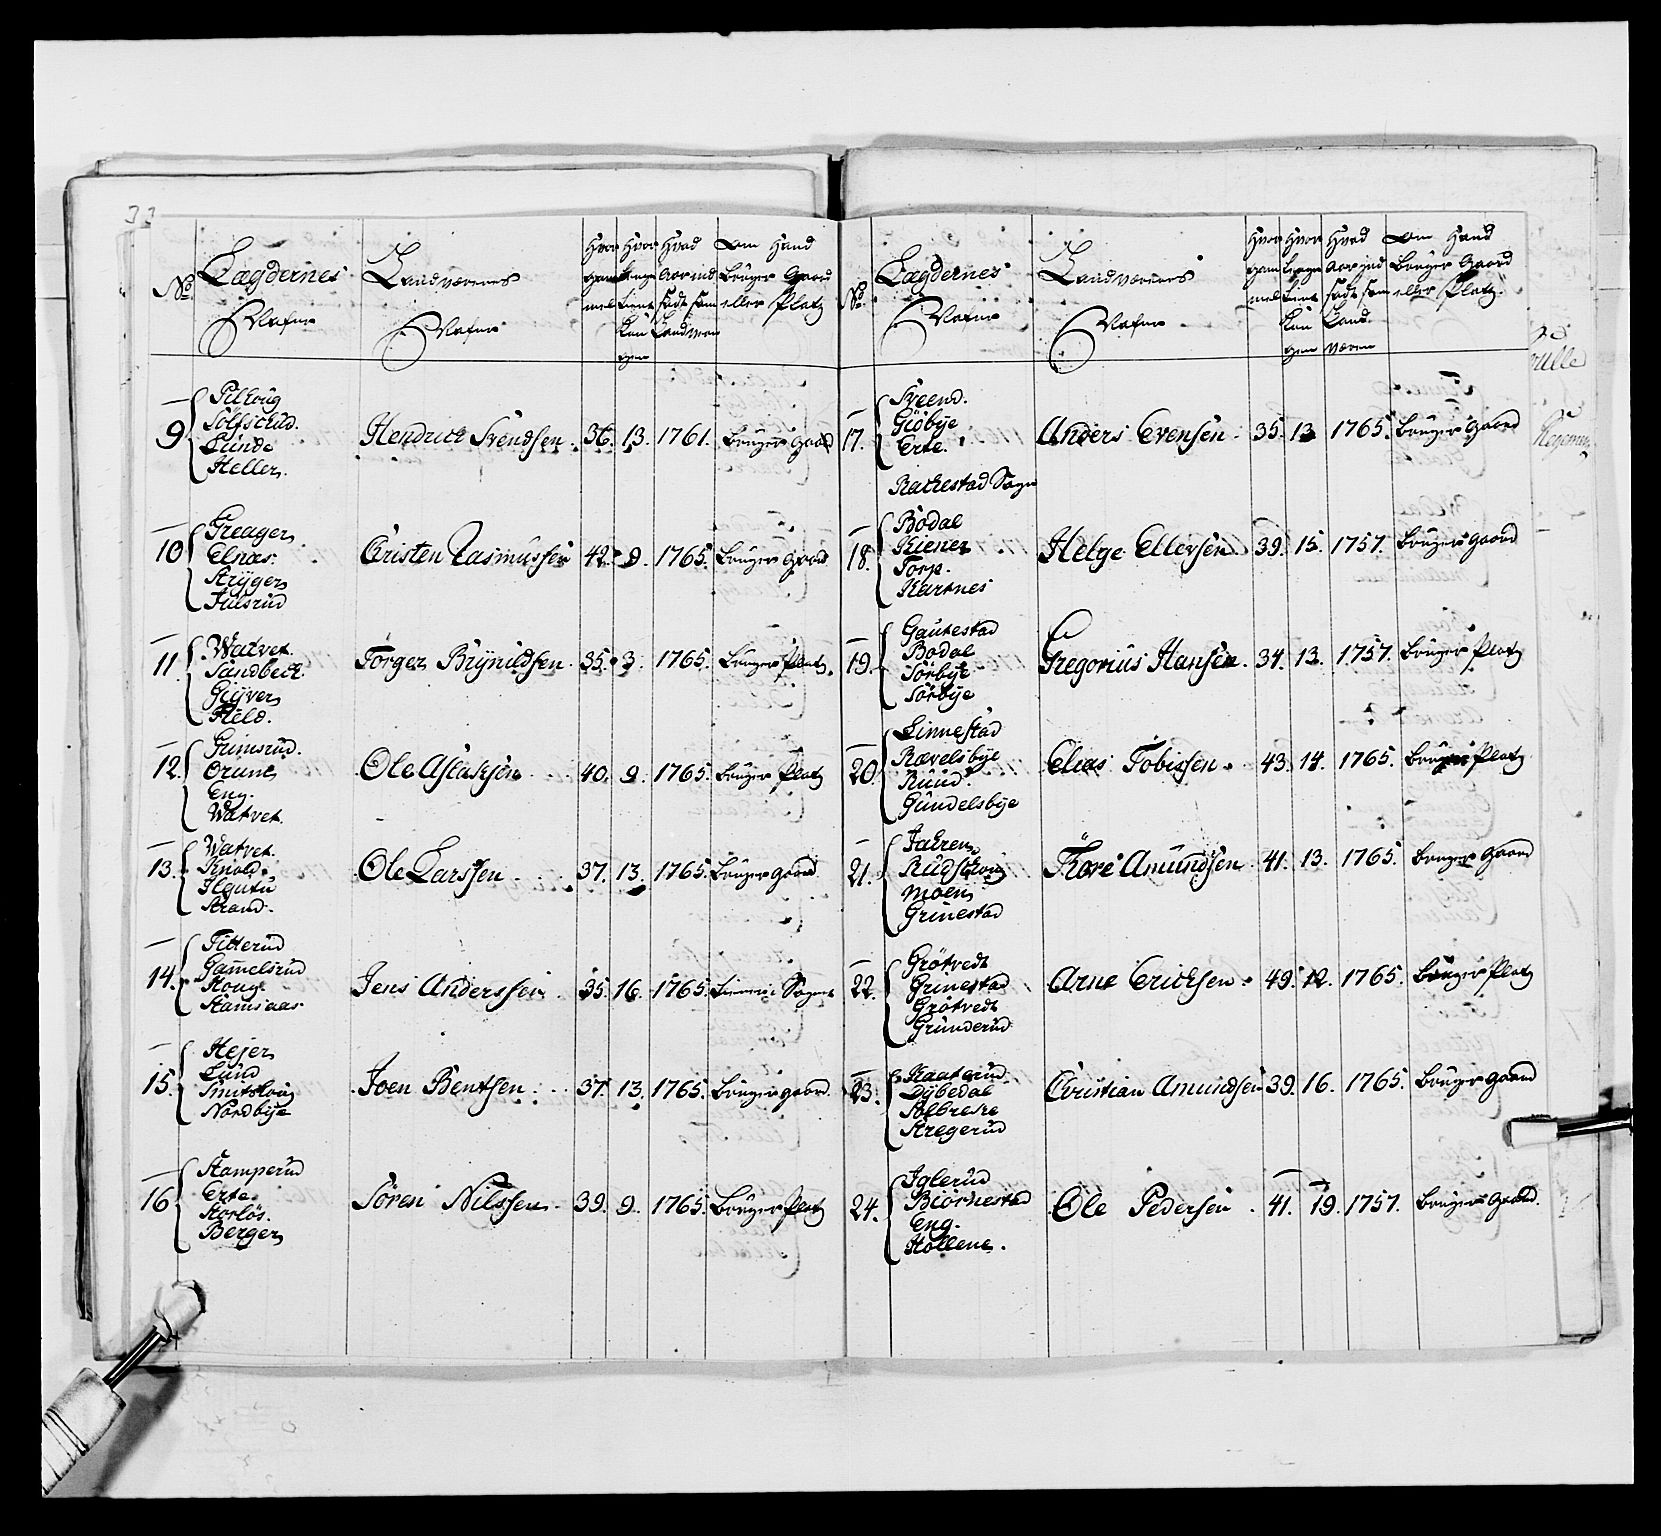 33
No.
Lægdernes
Nafne
Landværnes
Nafne
Hvor gammel
Hvor længe tient Kongen
Hvad Aar indsadt som Landværn
om Hand bruger Gaard eller Platz
9
Pilkoug
Solfschid.
Lunde
Heller
Hendrich Svendsen. 36. 13. 1761. bruger gaard
10
Greager
Elnas.
Stryger
Julsrud
Christen Rasmussen 42. 9. 1765. bruger gaard
11
Watvet.
Sandbeck.
Gyver
Kield.
Torger Brynildsen. 35. 3. 1765. bruger Platz.
12.
Grimsrud.
Brune
Eng.
Watvet.
Ole Aslaksen 40. 9. 1765. bruger Platz
13.
Watvet.
Knold
Strand.
Ole Larssen 37. 13. 1765. bruger gaard
14.
Titterud
Gamelsrud
Houg.
Hamsaas
Jens Anderssen 35. 16. 1765.
15.
Hejer
Lund
Smitskoug
Nordbye
Joen Bentsen 37. 13. 1765. bruger gaard.
16
Stamperud
Erte
Storlös.
Berger
Sören Nilssen. 39. 9. 1765. bruger Platz
No.
Lægdernes
Nafne
Landværnes
Nafne
Hvor gammel
Hvor længe tient Kongen
Hvad Aar indsadt som Landværn
om Hand bruger Gaard eller Platz.
17.
Sveend.
Giöbye
Erte.
Anders Evensen. 35. 13 1765. bruger gaard
Rachestad Sogn
18.
Bodal
Kiener
Torp.
Kartnes
Helge Ellevsen 39. 15. 1757. bruger gaard
19.
Gautestad
Bodal
Sörbye
Sörbye
Gregorius Hansen. 34. 13. 1757. bruger Platz
20
Linnestad
Rævelsbye
Ruud.
Gundelsbye
Elias Tobissen. 43. 14. 1765. bruger Platz
21.
Jahren
Rudskoug
Moen
Grinestad
Tore Amundsen. 41. 13. 1765. bruger gaard
22.
Grötvedt
Grinestad
Grötvedt
Grunderud
Arne Erichsen. 49. 12. 1765. bruger Platz
23.
Kaaterud
Dybedal
Solbreke
Stregerud
Christian Amundsen 39. 16. 1765. bruger gaard
24.
Iglerud
Biörnestad
Eng.
Kollene.
Ole Pedersen. 41. 19. 1757. bruger gaard.